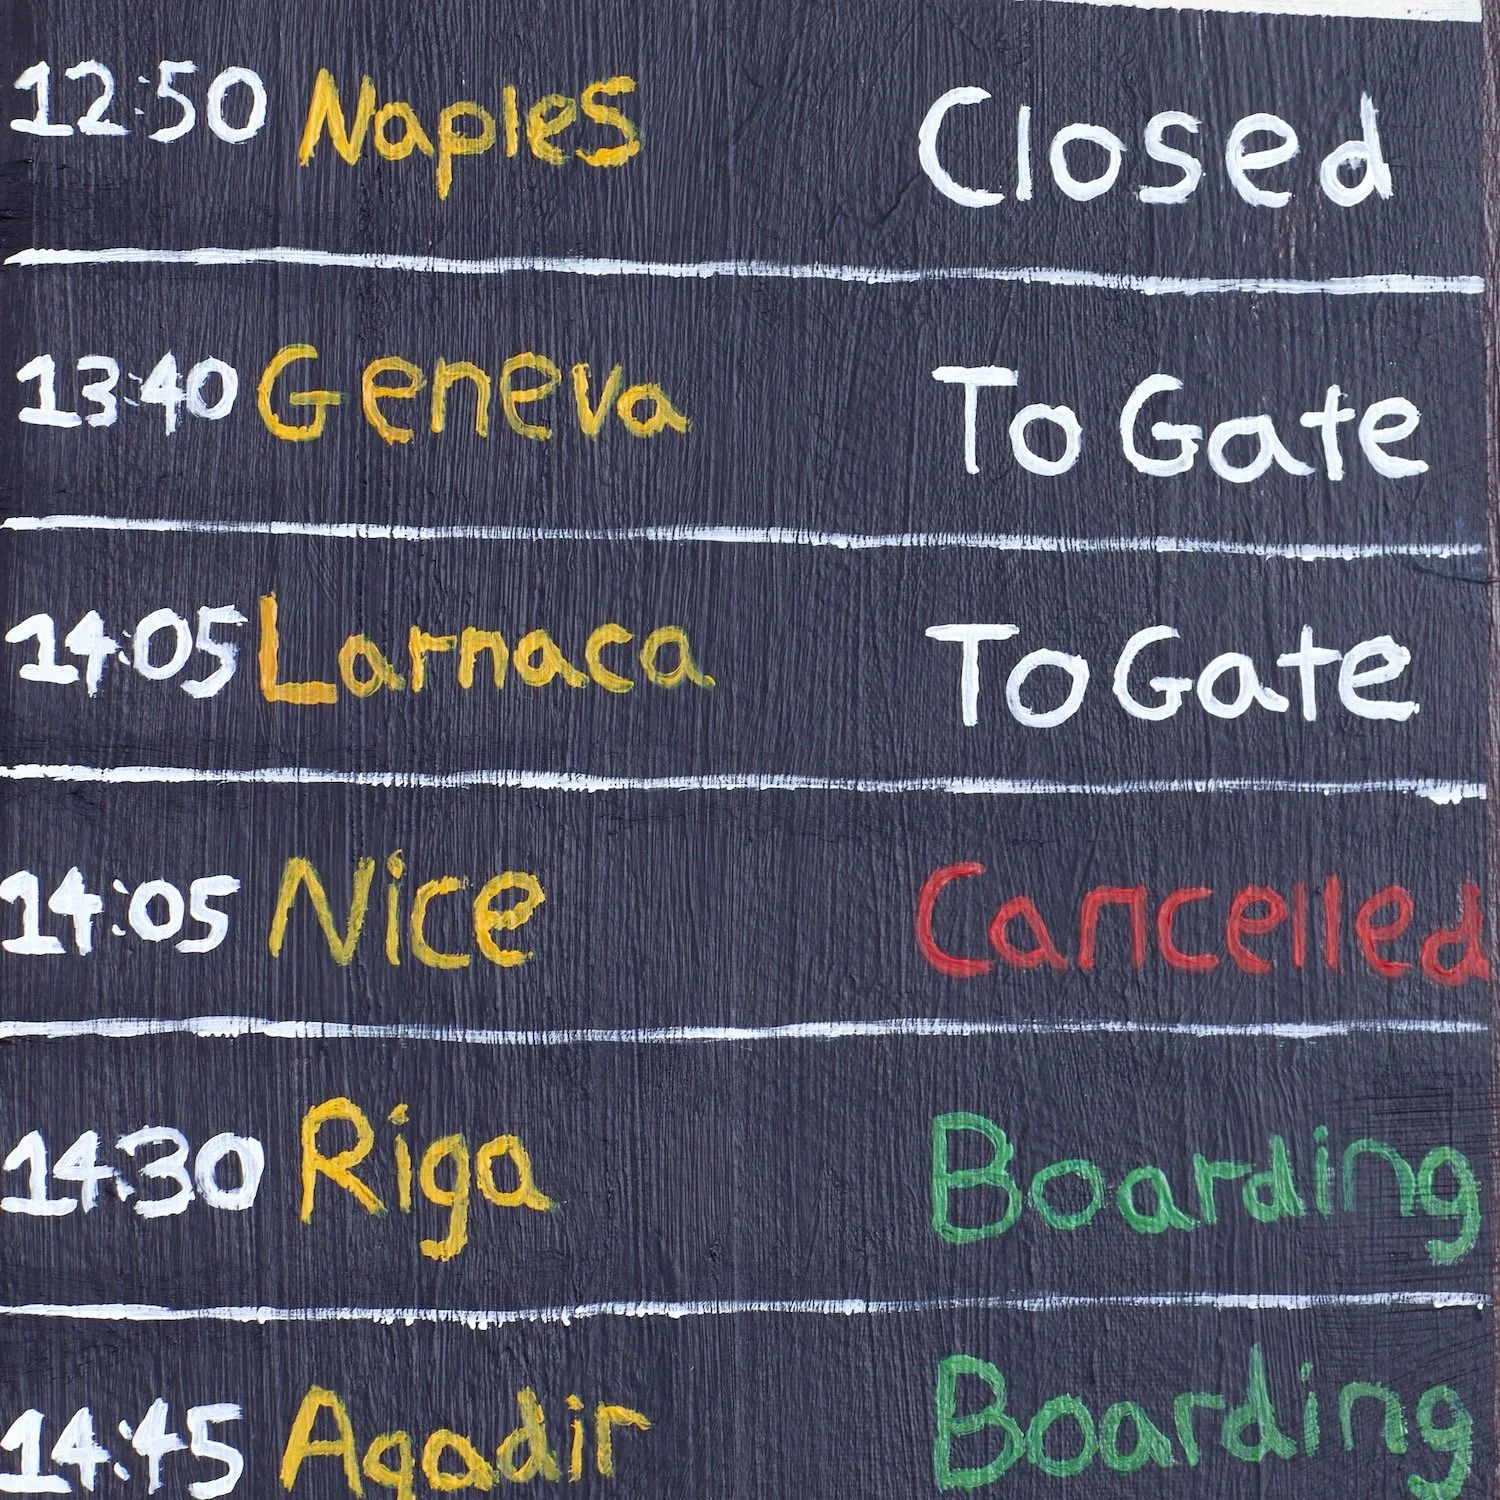 12:50 Naples Closed
13:40 Geneva To Gate
14:05 Larnaca To Gate
14:05 Nice Cancelled
14:30 Riga Boarding
14:45 Agadir Boarding